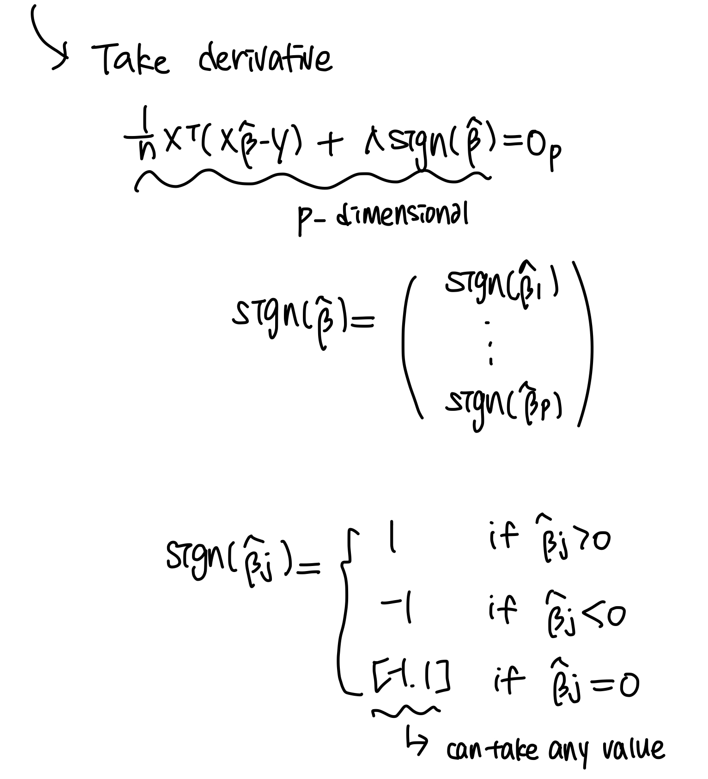 ↳ Take derivative
1/n Xᵀ(Xβ̂-Y) + λsign(β̂)=0ₚ
p-dimensional
sign(β̂)= ( sign(β̂₁)
⋮
sign(β̂ₚ) )
sign(β̂ⱼ)= { 1 if β̂ⱼ>0
-1 if β̂ⱼ<0
[-1.1] if β̂ⱼ=0
↳ can take any value